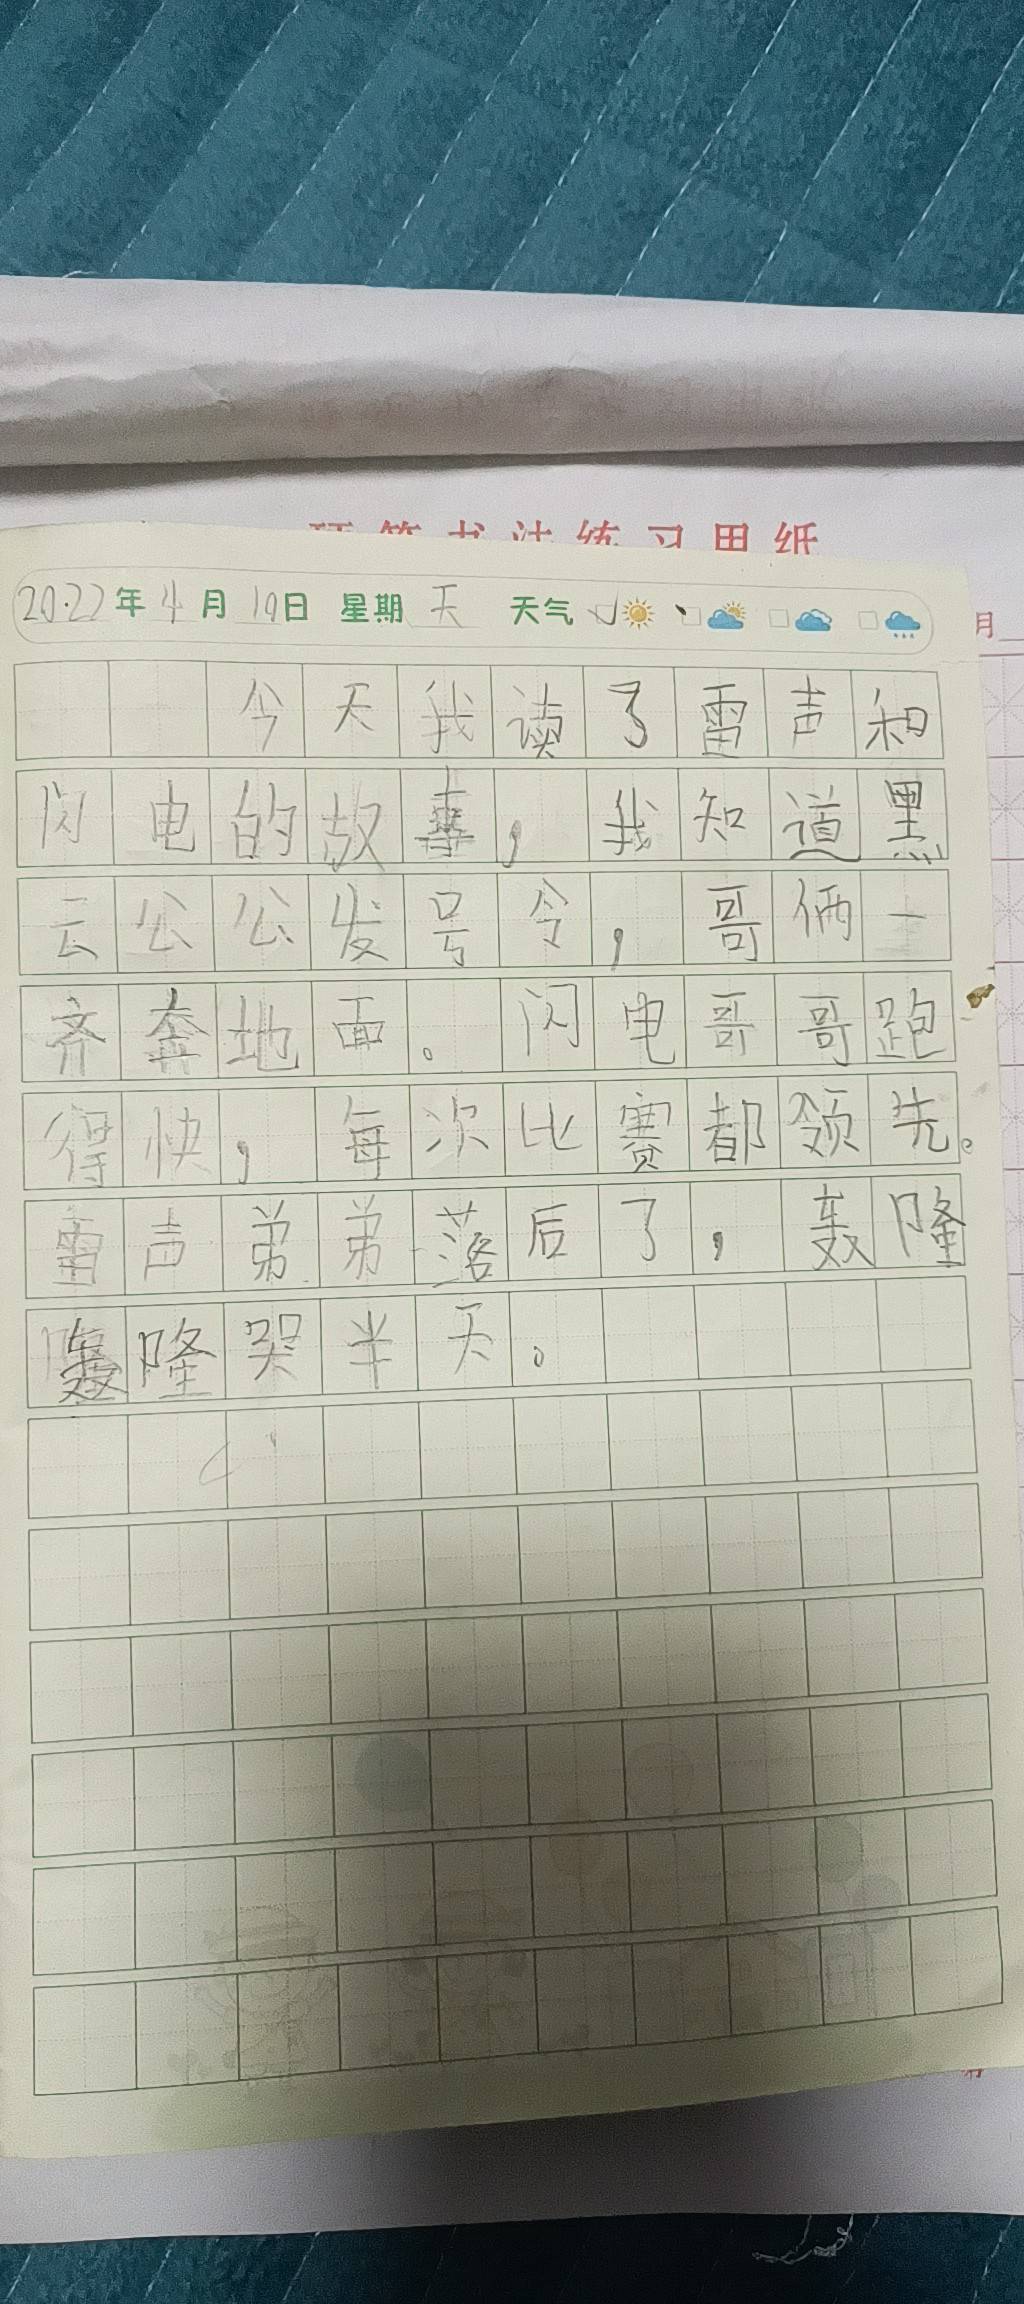 硬笔书法练习用纸
2022年4月10日 星期天 天气
月
今天我读了雷声和
闪电的故事，我知道黑
云公公发号令，哥俩一
齐奔地面。闪电哥哥跑
得快，每次比赛都领先。
雷声弟弟落后了，轰隆
轰隆哭半天。